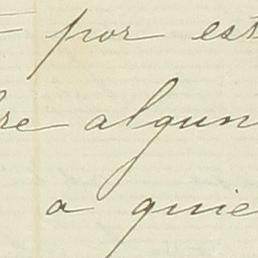 por est
re algun
a quie